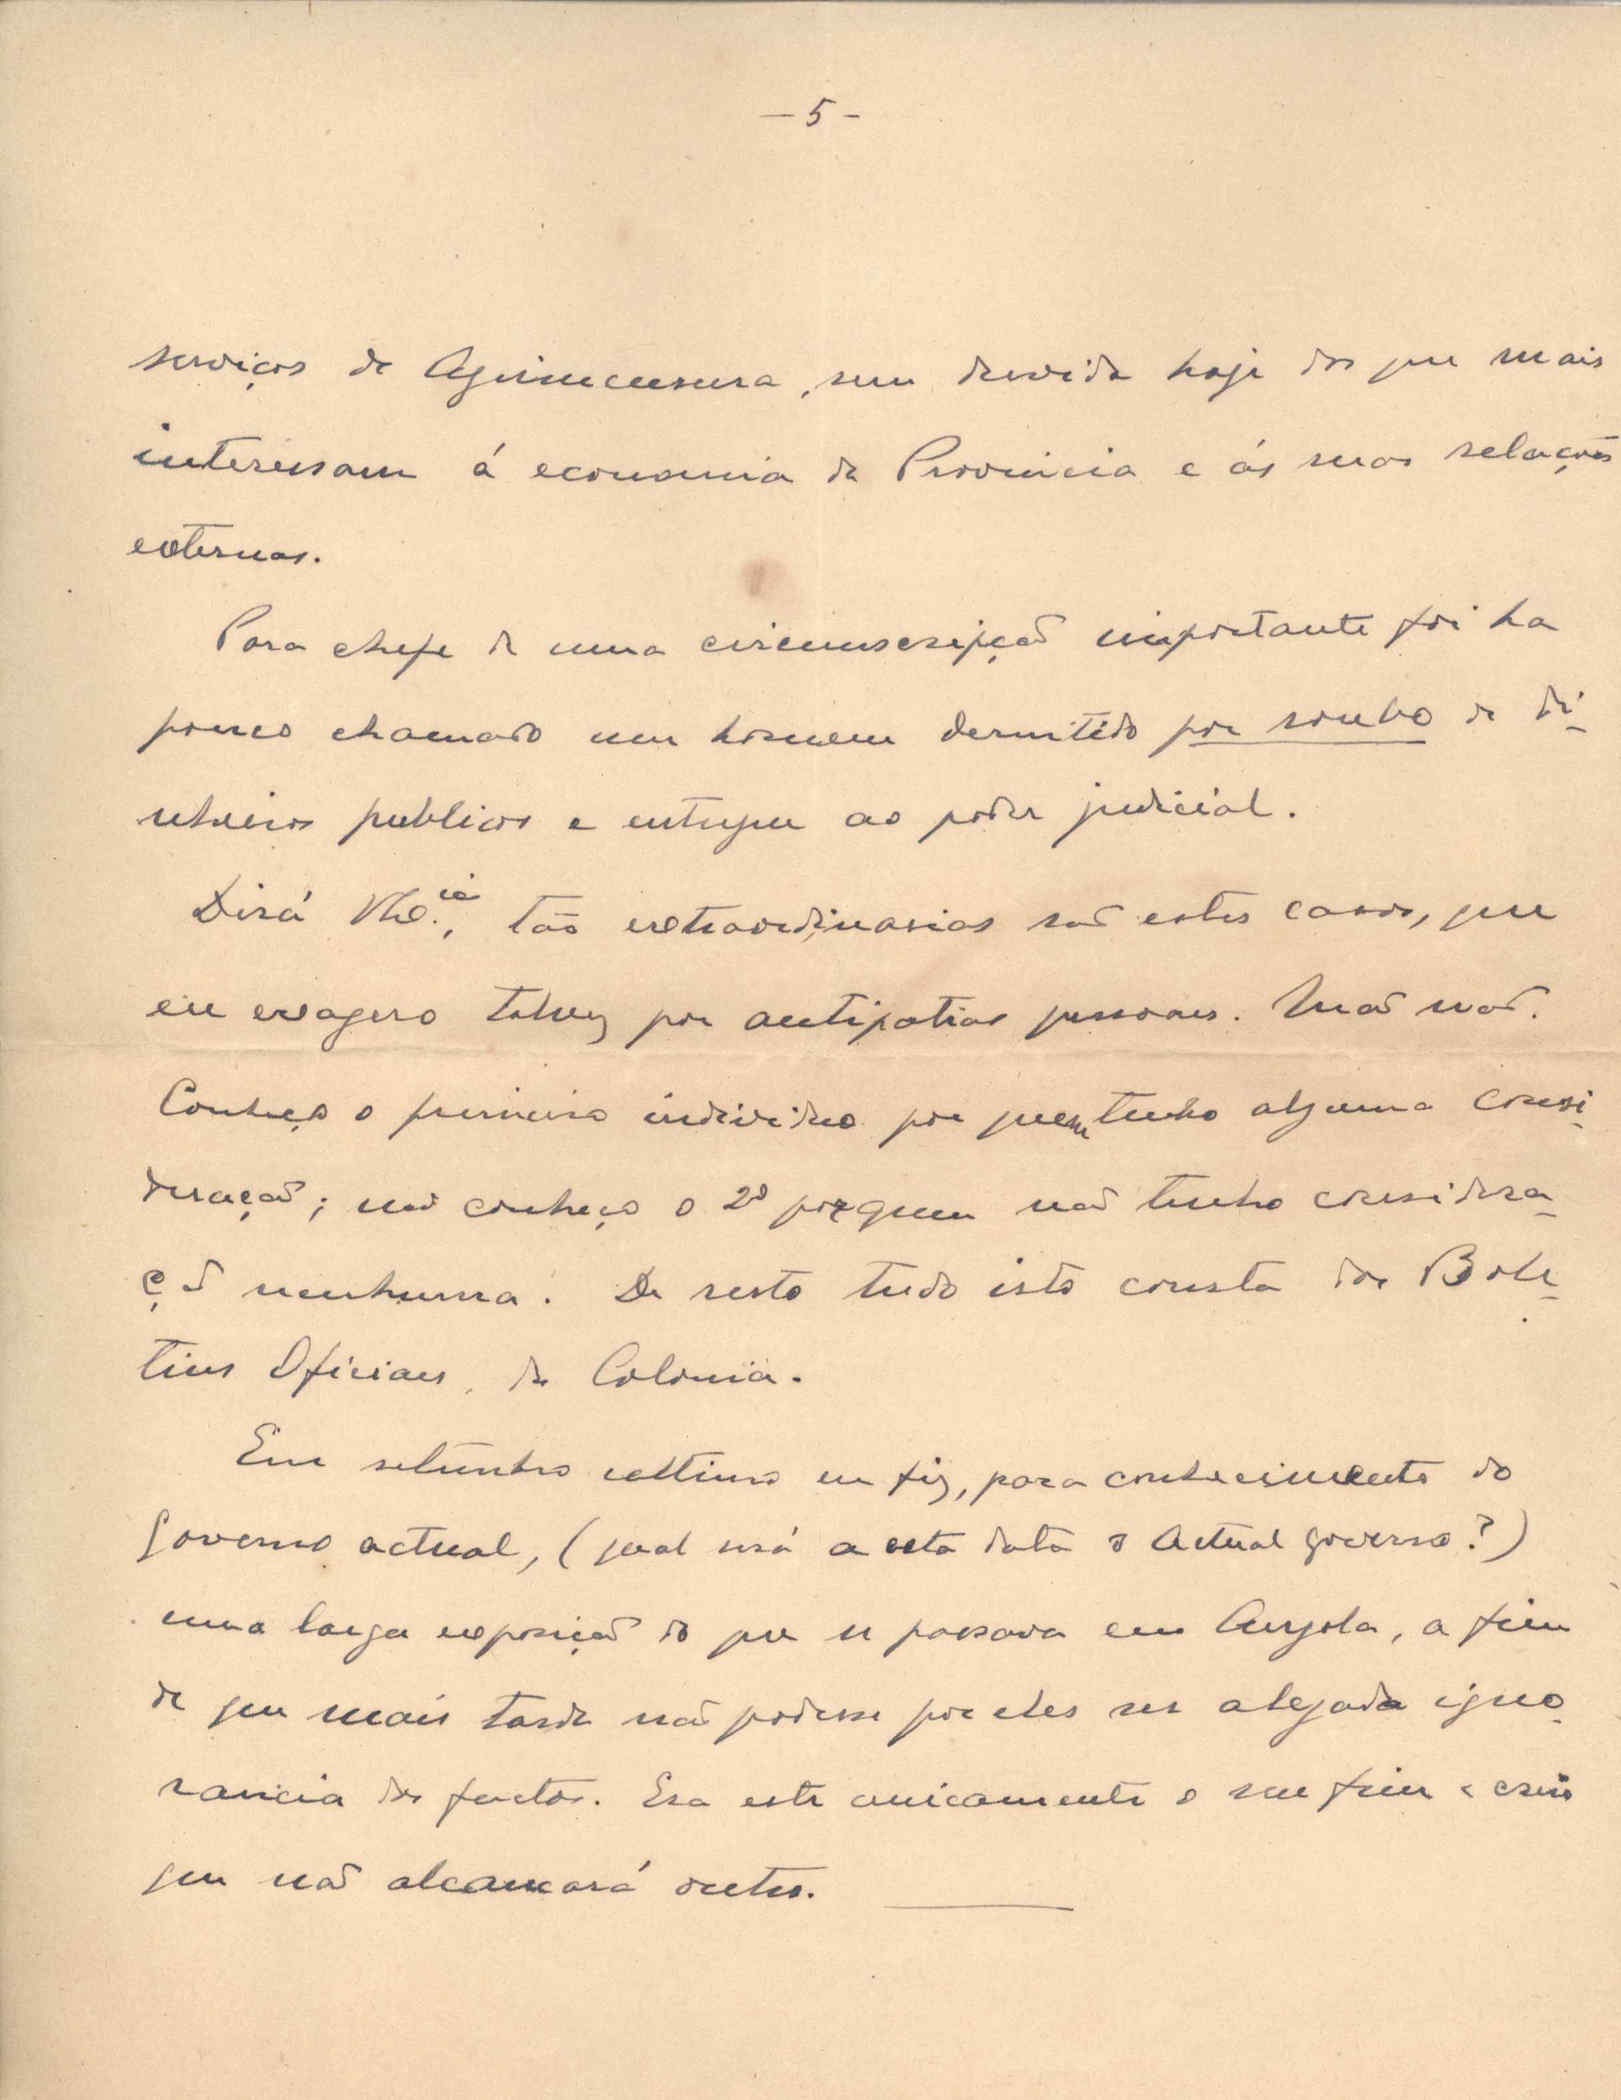 — 5 -
serviços de Agrimensura, sem duvida hoje dos que mais
interessam á economia da Provincia e ás suas relações
externas.
Para chefe de uma circunscripção importante foi ha
pouco chamado um homem demitido por roubo de di-
nheiros publicos e entregue ao poder judicial.
Dirá V. Ex.cia, tão extraordinarios são estes casos, que
eu exagero talvez por antipatias pessoaes. Mas não.
Conheço o primeiro individuo por quem tenho alguma consi-
deração; não conheço o 2º por quem não tenho considera-
ção nenhuma. De resto tudo isto consta dos Bole-
tins Oficiaes da Colonia.
Em setembro ultimo eu fiz, para conhecimento do
governo actual, (qual será a esta data o actual governo?)
uma larga exposição do que se passava em Angola, a fim
de que mais tarde não podesse por eles ser alegada igno-
rancia dos factos. Era este unicamente o seu fim e creio
que não alcançará outro.